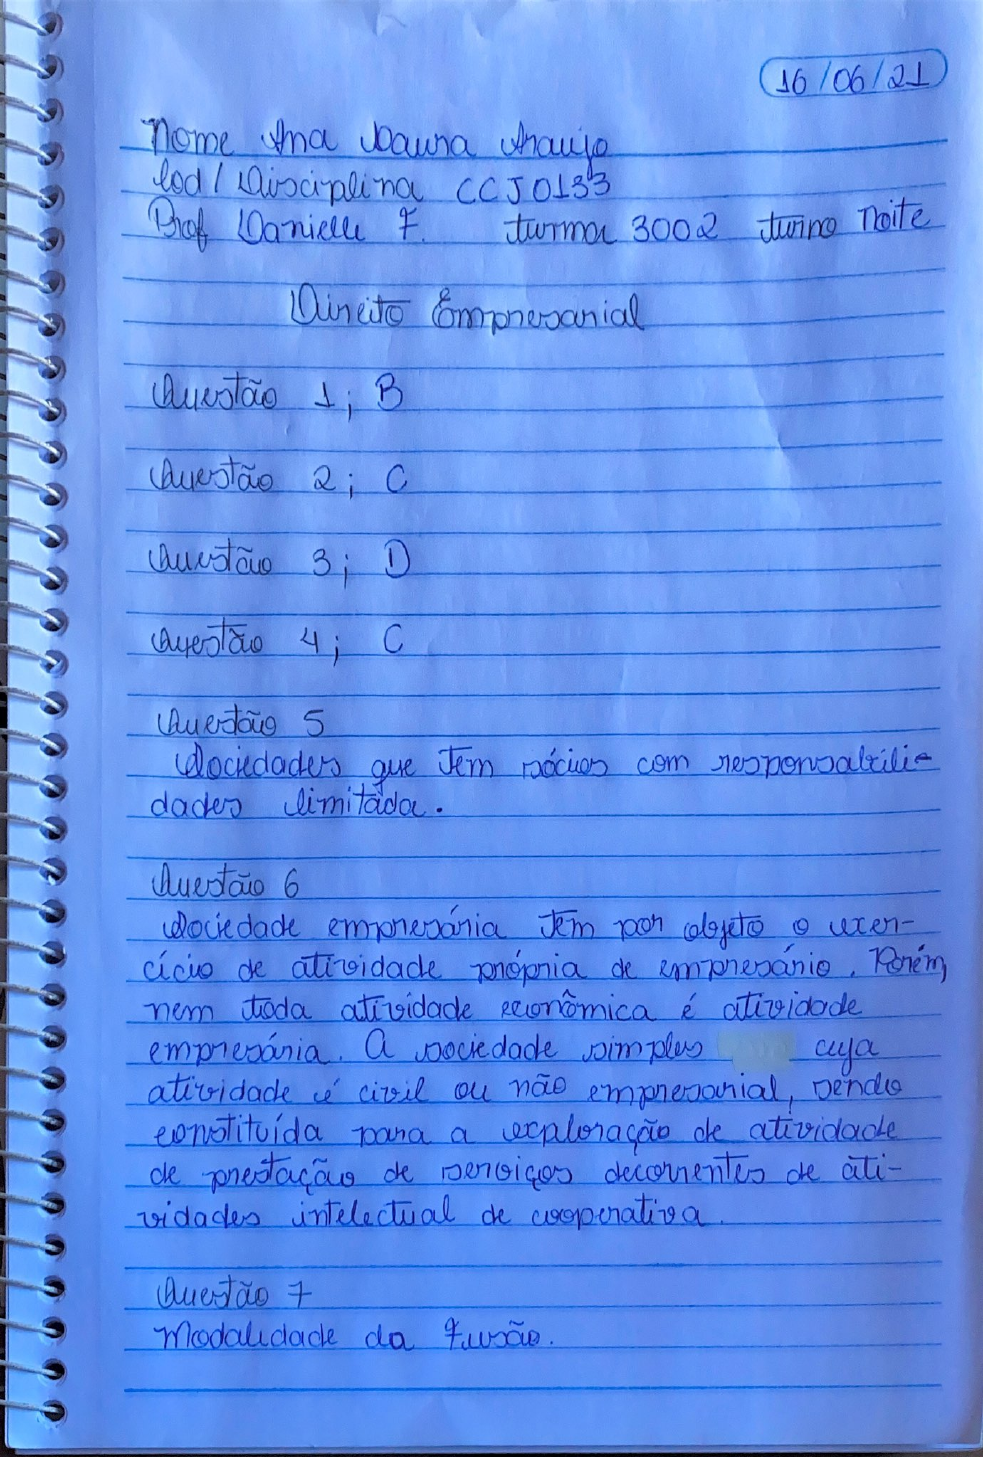 16/06/21
Nome Ana Isaura Araujo
Cod/Disciplina CCJ0133
Prof Danielle F. turma 3002 turno Noite
Direito Empresarial
Questão 1; B
Questão 2; C
Questão 3; D
Questão 4; C
Questão 5
Sociedades que tem sócios com responsabili-
dades limitada.
Questão 6
Sociedade empresária tem por objeto o exer-
cício de atividade própria de empresário. Porém,
nem toda atividade econômica é atividade
empresária. A sociedade simples cuja
atividade é civil ou não empresarial, sendo
constituída para a exploração de atividade
de prestação de serviços decorrentes de ati-
vidades intelectual de cooperativa.
Questão 7
Modalidade da Fusão.